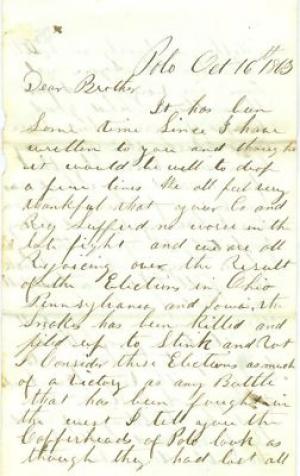 Polo Oct 16th 1863
Dear Brother
It has been
Some time Since I have
written to you and thought
it would be well to drop
a few lines We all feel very
thankful that your Co and
Reg Sufferd no worse in the
late fight and we are all
Rejoicing over the Result
of the Elections in Ohio
Pennsylvania and Iowa. the
Snake has been killed and
pild up to Stink and Rot
I Consider these Elections as much
of a victory as any Battle
that has been fought in
the west I tell you the
Copperheads of Polo look as
though they had lost all